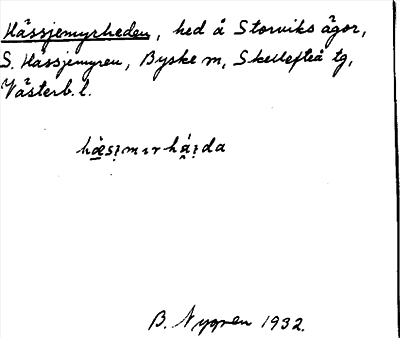 Hässjemyrheden, hed å Storviks ägor,
S. Hässjemyren, Byske sn, Skellefteå tg,
Västerb. l.
B. Nygren 1932.